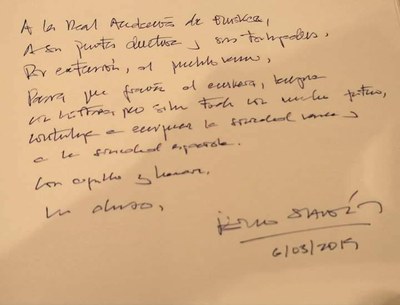 A la Real Academia de Euskera,
A su junta directiva y sus
Por extensión, al pueblo vasco,
Para que gracias al euskera, lengua
con historia pero sobre todo con mucho futuro,
contribuya a enriquecer la sociedad vasca y
a la sociedad española.
Con orgullo y honor,
Un abrazo,
6/03/2019